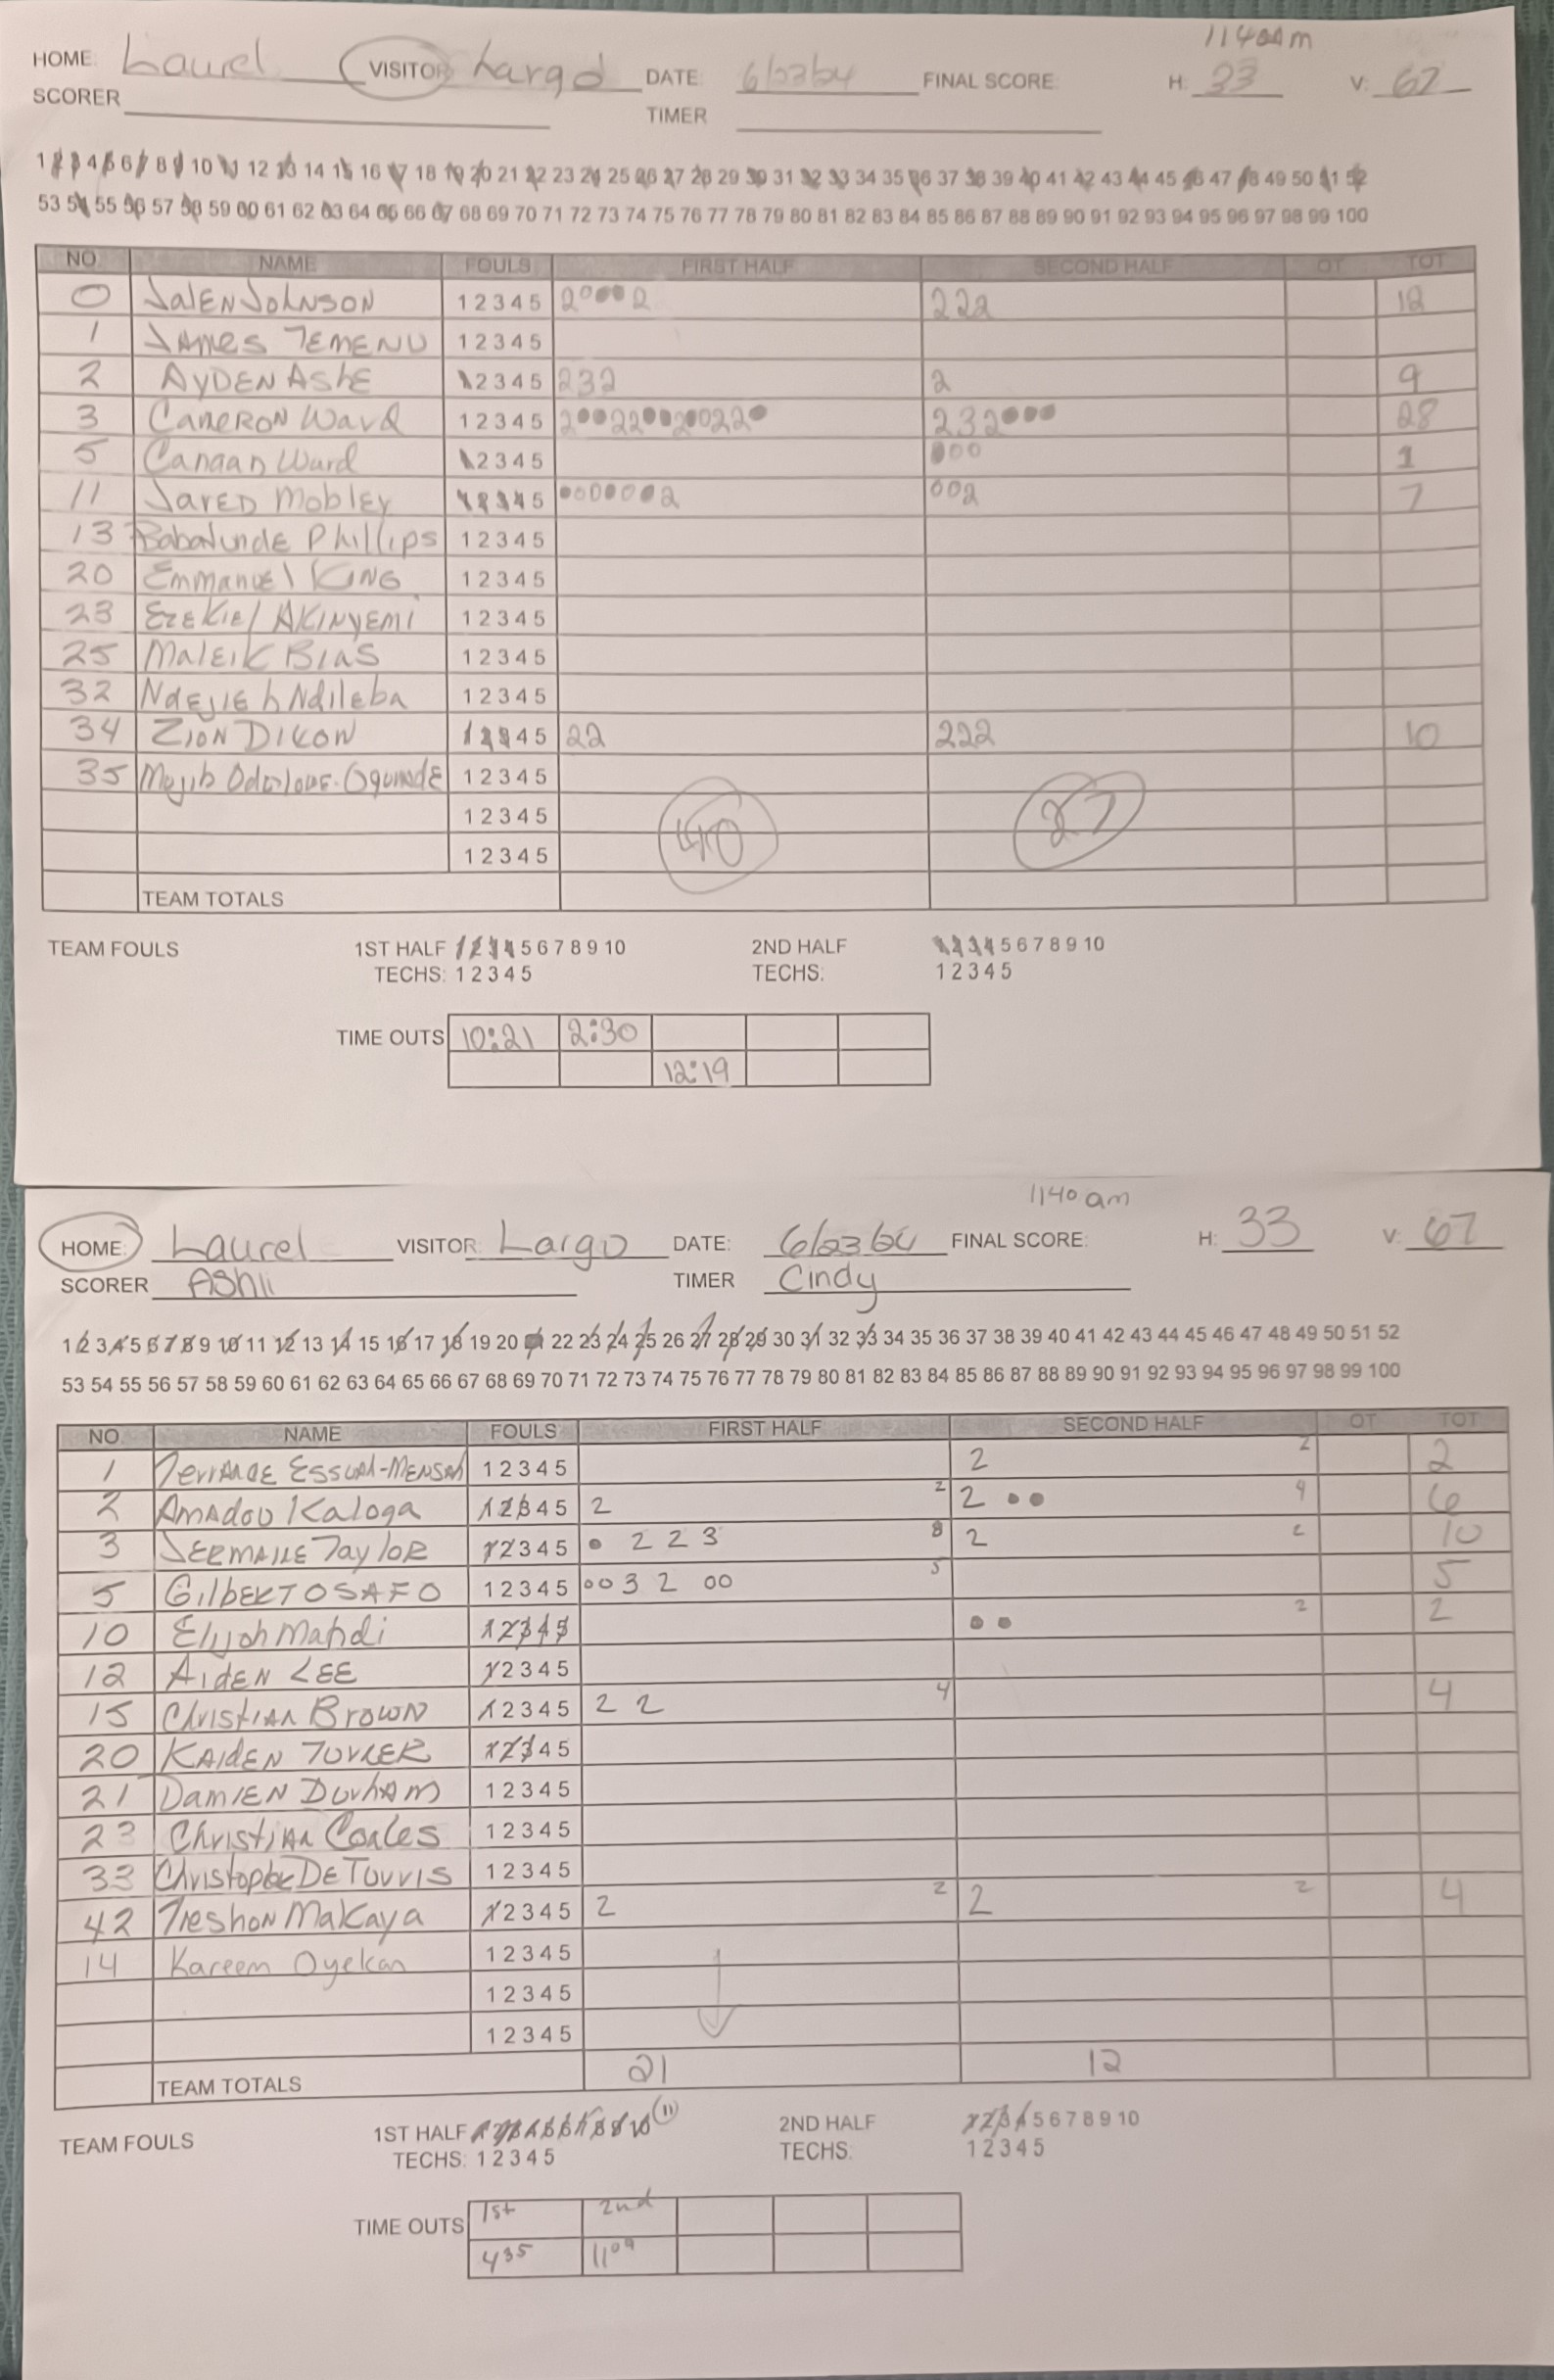 1140am
HOME: Laurel VISITOR: Largo DATE: 6/23/24 FINAL SCORE: H: 33 V: 67
SCORER TIMER
1 2 3 4 5 6 7 8 9 10 11 12 13 14 15 16 17 18 19 20 21 22 23 24 25 26 27 28 29 30 31 32 33 34 35 36 37 38 39 40 41 42 43 44 45 46 47 48 49 50 51 52
53 54 55 56 57 58 59 60 61 62 63 64 65 66 67 68 69 70 71 72 73 74 75 76 77 78 79 80 81 82 83 84 85 86 87 88 89 90 91 92 93 94 95 96 97 98 99 100
NO. NAME FOULS FIRST HALF SECOND HALF OT TOT
0 Jalen Johnson 1 2 3 4 5 2 0 ● ● ● 2 2 2 2 12
1 James Temenu 1 2 3 4 5
2 Ayden Ashe 1 2 3 4 5 2 3 2 2 9
3 Cameron Ward 1 2 3 4 5 2 ● ● 2 2 ● ● 2 ● 0 2 2 ● 2 3 2 ● ● ● 28
5 Canaan Ward 1 2 3 4 5 ● 0 0 1
11 Jared Mobley 1 2 3 4 5 ● 0 0 0 0 ● ● 2 0 0 2 7
13 Babatunde Phillips 1 2 3 4 5
20 Emmanuel King 1 2 3 4 5
23 Ezekiel Akinyemi 1 2 3 4 5
25 Maleik Bias 1 2 3 4 5
32 Ndejieh Ndileba 1 2 3 4 5
34 Zion Dixon 1 2 3 4 5 2 2 2 2 2 10
35 Mojib 1 2 3 4 5
1 2 3 4 5
40 27
1 2 3 4 5
TEAM TOTALS
TEAM FOULS 1ST HALF 1 2 3 4 5 6 7 8 9 10 2ND HALF 1 2 3 4 5 6 7 8 9 10
TECHS: 1 2 3 4 5 TECHS: 1 2 3 4 5
TIME OUTS 10:21 2:30
12:19
1140 am
HOME: Laurel VISITOR: Largo DATE: 6/23/24 FINAL SCORE: H: 33 V: 67
SCORER Ashli TIMER Cindy
1 2 3 4 5 6 7 8 9 10 11 12 13 14 15 16 17 18 19 20 21 22 23 24 25 26 27 28 29 30 31 32 33 34 35 36 37 38 39 40 41 42 43 44 45 46 47 48 49 50 51 52
53 54 55 56 57 58 59 60 61 62 63 64 65 66 67 68 69 70 71 72 73 74 75 76 77 78 79 80 81 82 83 84 85 86 87 88 89 90 91 92 93 94 95 96 97 98 99 100
NO. NAME FOULS FIRST HALF SECOND HALF OT TOT
1 Terrance Essuah-Mensah 1 2 3 4 5 2 2 2
2 Amadou Kaloga 1 2 3 4 5 2 2 2 ● ● 4 6
3 Jermaine Taylor 1 2 3 4 5 ● 2 2 3 8 2 2 10
5 Gilbert Osafo 1 2 3 4 5 0 0 3 2 0 0 5 5
10 Elijah Mahdi 1 2 3 4 5 ● ● 2 2
12 Aiden Lee 1 2 3 4 5
15 Christian Brown 1 2 3 4 5 2 2 4 4
20 Kaiden Turner 1 2 3 4 5
21 Damien Durham 1 2 3 4 5
23 Christian Coales 1 2 3 4 5
33 Christopher DeTurris 1 2 3 4 5
42 Treshon Makaya 1 2 3 4 5 2 2 2 2 4
14 Kareem Oyekan 1 2 3 4 5
1 2 3 4 5
1 2 3 4 5
TEAM TOTALS 21 12
TEAM FOULS 1ST HALF 1 2 3 4 5 6 7 8 9 10 (11) 2ND HALF 1 2 3 4 5 6 7 8 9 10
TECHS: 1 2 3 4 5 TECHS: 1 2 3 4 5
TIME OUTS 1st 2nd
4 35 11 09